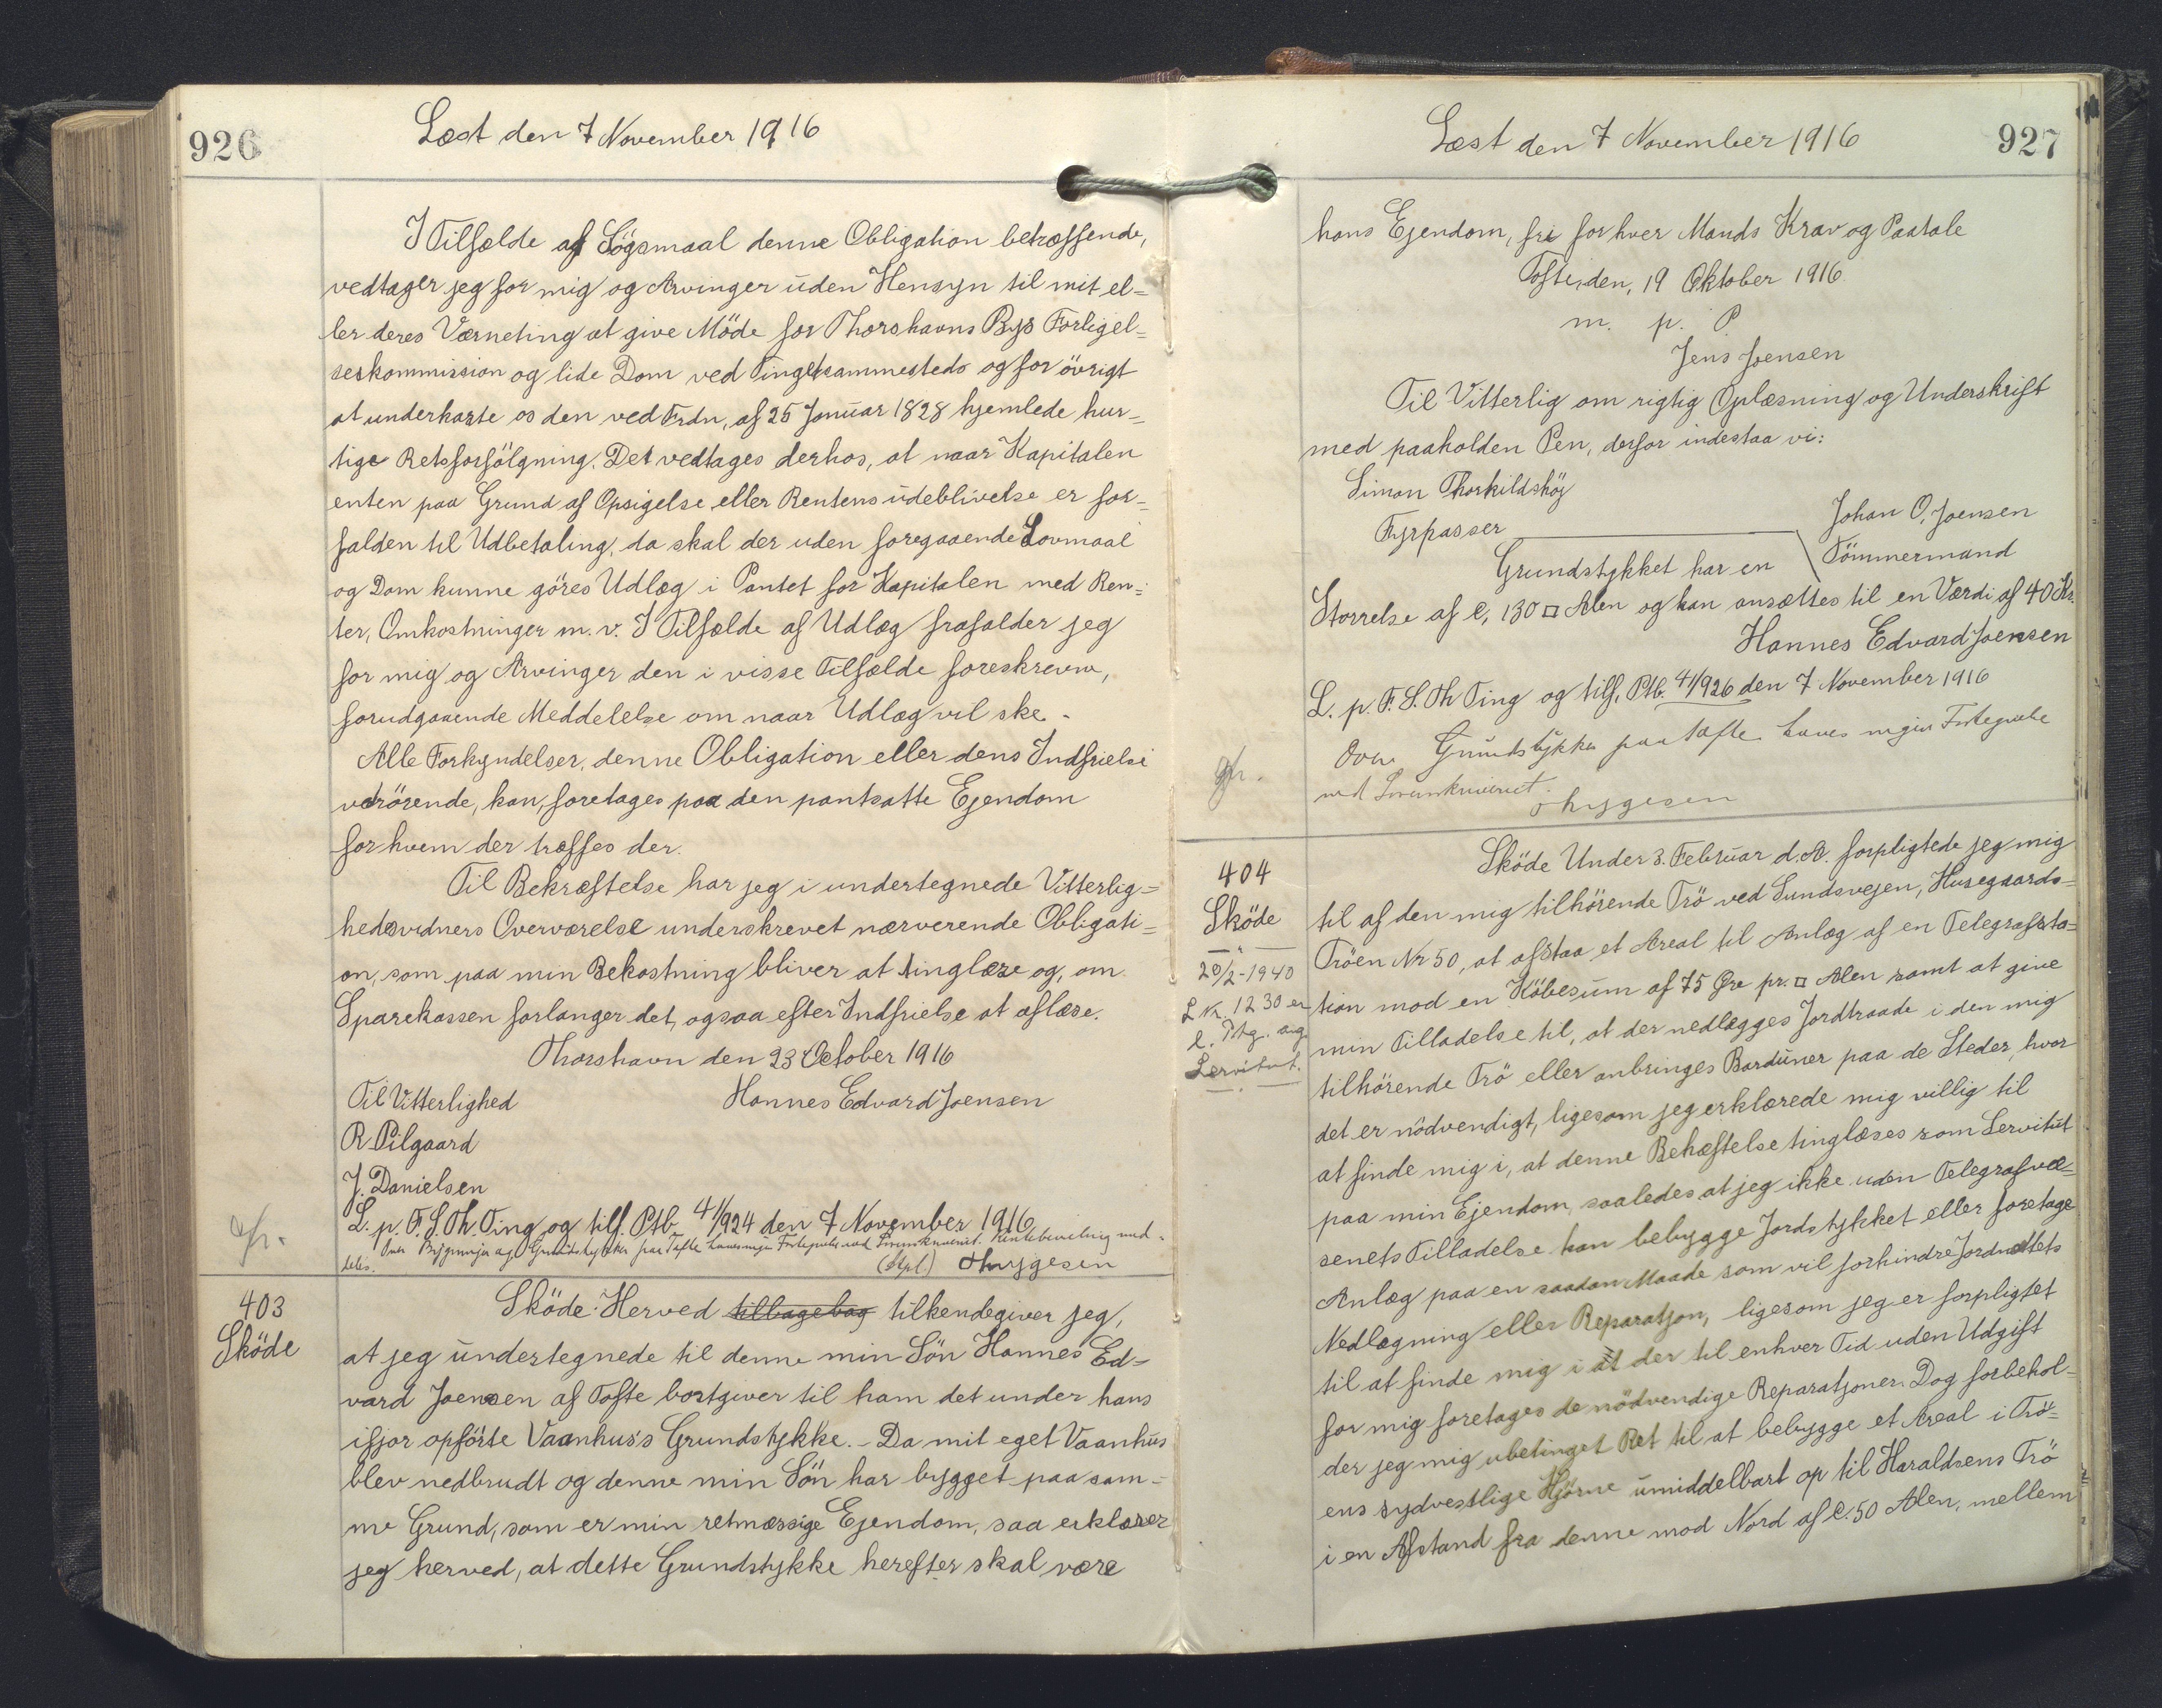 926
Læst den 7 November 1916
I Tilfælde af Sögsmaal denne Obligation betræffende,
vedtager jeg for mig og Arvinger uden Hensyn til mit el-
ler deres Værneting at give Möde for Thorshavns Bys Forligel-
seskommission og lide Dom ved Tinget sammesteds og for övrigt
at underkaste os den ved Frdn, af 25 Januar 1828 hjemlede hur-
tige Retsforfölgning. Det vedtages derhos, at naar Kapitalen
enten paa Grund af Opsigelse eller Rentens udeblivelse er for-
falden til Udbetaling, da skal der uden foregaaende Lovmaal
og Dom kunne göres Udlæg i Pantet for Kapitalen med Ren-
ter, Omkostninger m. v. I Tilfælde af Udlæg frafalder jeg
for mig og Arvinger den i visse Tilfælde foreskrevne,
forudgaaende Meddelelse om naar Udlæg vil ske.
Alle Forkyndelser, denne Obligation eller dens Indfrielse
vedrörende, kan foretages paa den pantsatte Ejendom
for hvem der træffes der.
Til Bekræftelse har jeg i undertegnede Vitterlig-
hedsvidners Overværelse underskrevet nærverende Obligati-
on, som paa min Bekostning bliver at tinglæse og, om
Sparekassen forlanger det, ogsaa efter Indfrielse at aflæse.
Thorshavn den 23 October 1916
Til Vitterlighed Hannes Edvard Joensen
R Pilgaard
J. Danielsen
L. p. F. S. Th. Ting og tilf. Ptb. 41/924 den 7 November 1916
Over Bygninger og Grundstykker paa Tofte haves ingen ved med-
deles. (Stpl.) Thygesen
403
Sköde
Sköde. Herved tilbagebag tilkendegiver jeg,
at jeg undertegnede til denne min Sön Hannes Ed-
vard Joensen af Tofte bortgiver til ham det under hans
ifjor opförte Vaanhus's Grundstykke. - Da mit eget Vaanhus
blev nedbrudt og denne min Sön har bygget paa sam-
me Grund, som er min retmæssige Ejendom, saa erklærer
jeg herved, at dette Grundstykke herefter skal være
Læst den 7 November 1916
927
hans Ejendom, fri for hver Mands Krav og Paatale
Tofte, den, 19 Oktober 1916
m. p. P.
Jens Joensen
Til Vitterlig om rigtig Oplæsning og Underskrift
med paaholden Pen, derfor indestaa vi:
Simon Thorkildshöj
Fyrpasser
Johan O. Joensen
Tömmermand
Grundstykket har en
Storrelse af c, 130 □ Alen og kan ansættes til en Værdi af 40 Kr.
Hannes Edvard Joensen
L. p. F. S. Th Ting og tilf. Ptb. 41/926 den 7 November 1916
Over Grundstykker paa Tofte haves ingen
ved
Thygesen
404
Sköde
20/2-1940
Servitut.
Sköde Under 3. Februar d. A. forpligtede jeg mig
til af den mig tilhörende Trö ved Sundsvejen, Husegaards-
Tröen Nr 50, at afstaa et Areal til Anlæg af en Telegrafsta-
tion mod en Köbesum af 75 Øre pr. □ Alen samt at give
min Tilladelse til, at der nedlægges Jordtraade i den mig
tilhörende Trö eller anbringes Barduner paa de Steder, hvor
det er nödvendigt, ligesom jeg erklærede mig villig til
at finde mig i, at denne Behæftelse tinglæses som Servitut
paa min Ejendom, saaledes at jeg ikke uden Telegrafvæ-
senets Tilladelse kan bebygge Jordstykket eller foretage
Anlæg paa en saadan Maade som vil forhindre Jordnettets
Nedlægning eller Reparatjon, ligesom jeg er forpligtet
til at finde mig i at der til enhver Tid uden Udgift
for mig foretages de nödvendige Reparatjoner. Dog forbehol-
der jeg mig ubetinget Ret til at bebygge et Areal i Trö-
ens sydvestlige Hjörne umiddelbart op til Haraldsens Trö
i en Afstand fra denne mod Nord af c. 50 Alen, mellem